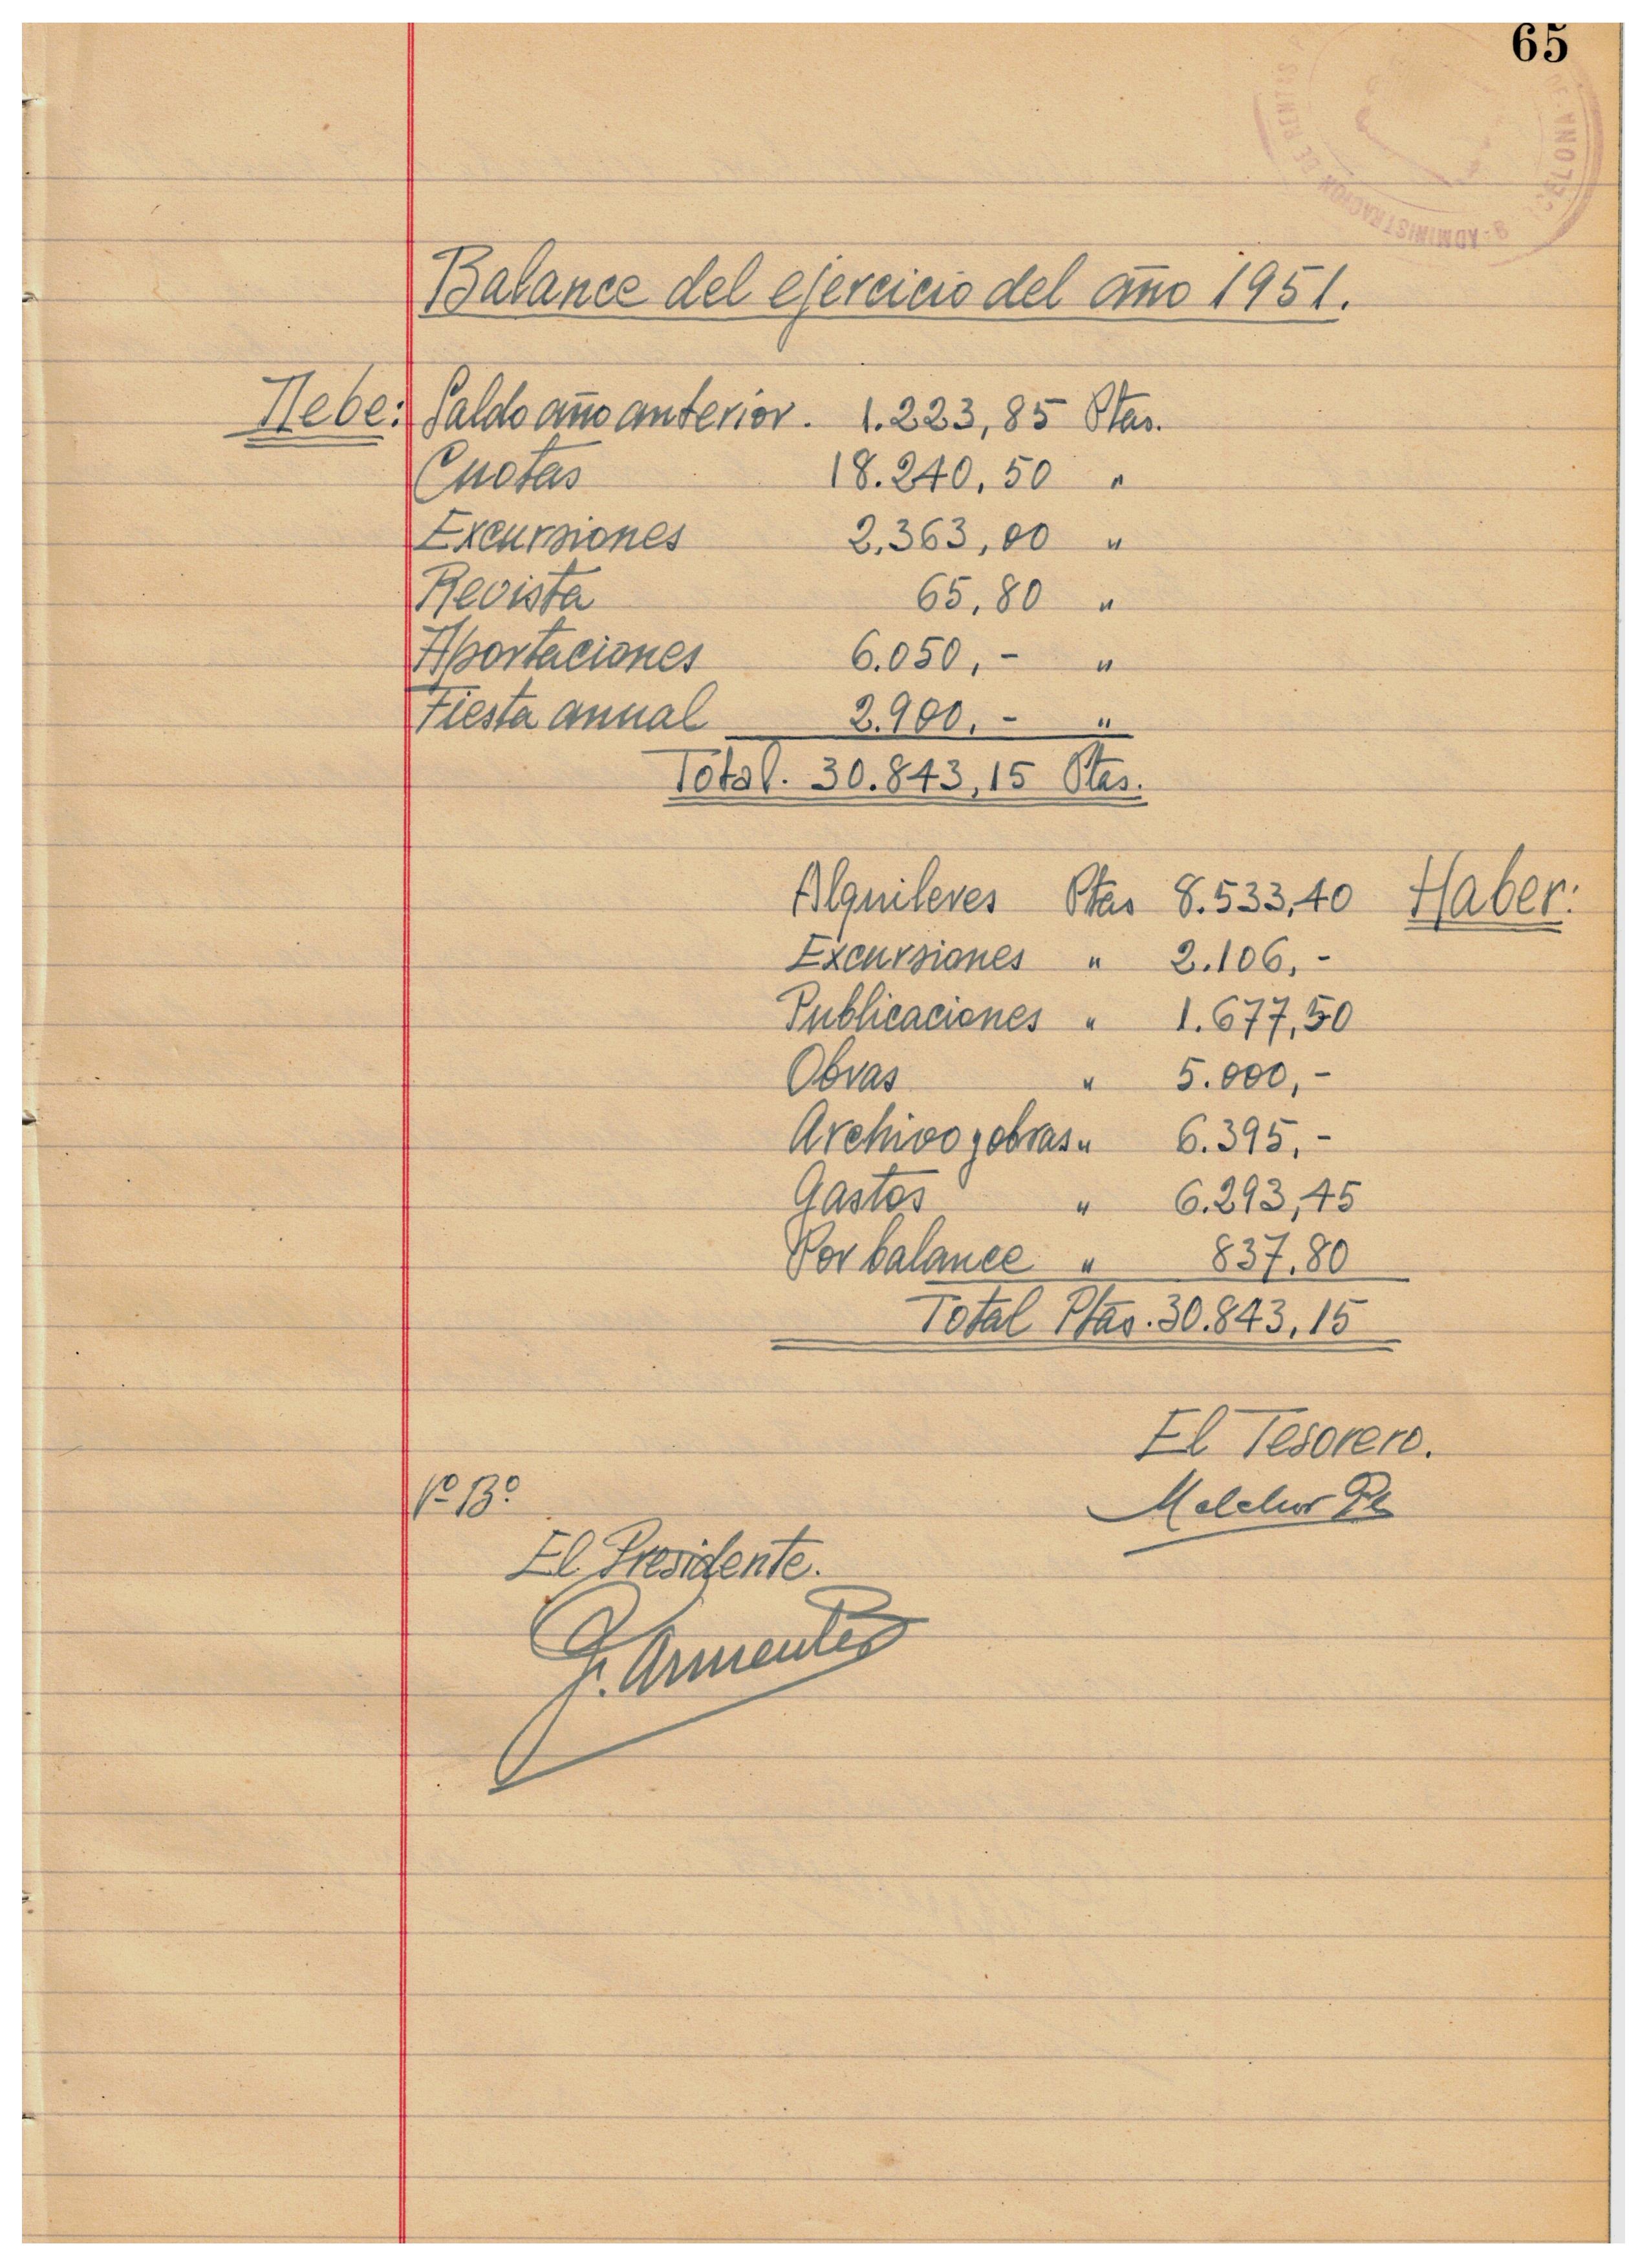 65
Balance del ejercicio del año 1951.
Debe: Saldo año anterior. 1.223,85 Ptas.
Cuotas 18.240,50 "
Excursiones 2.363,00 "
Revista 65,80 "
Aportaciones 6.050,- "
Fiesta annual 2.900.- "
Total. 30.843,15 Ptas.
Alquileres Ptas 8.533,40 Haber:
Excursiones " 2.106,-
Publicaciones " 1.677,50
Obras " 5.000,-
Archivo y obras " 6.395,-
Gastos " 6.293,45
Por balance " 837,80
Total Ptas. 30.843,15
El Tesorero.
Vº Bº
Melchor
El Presidente.